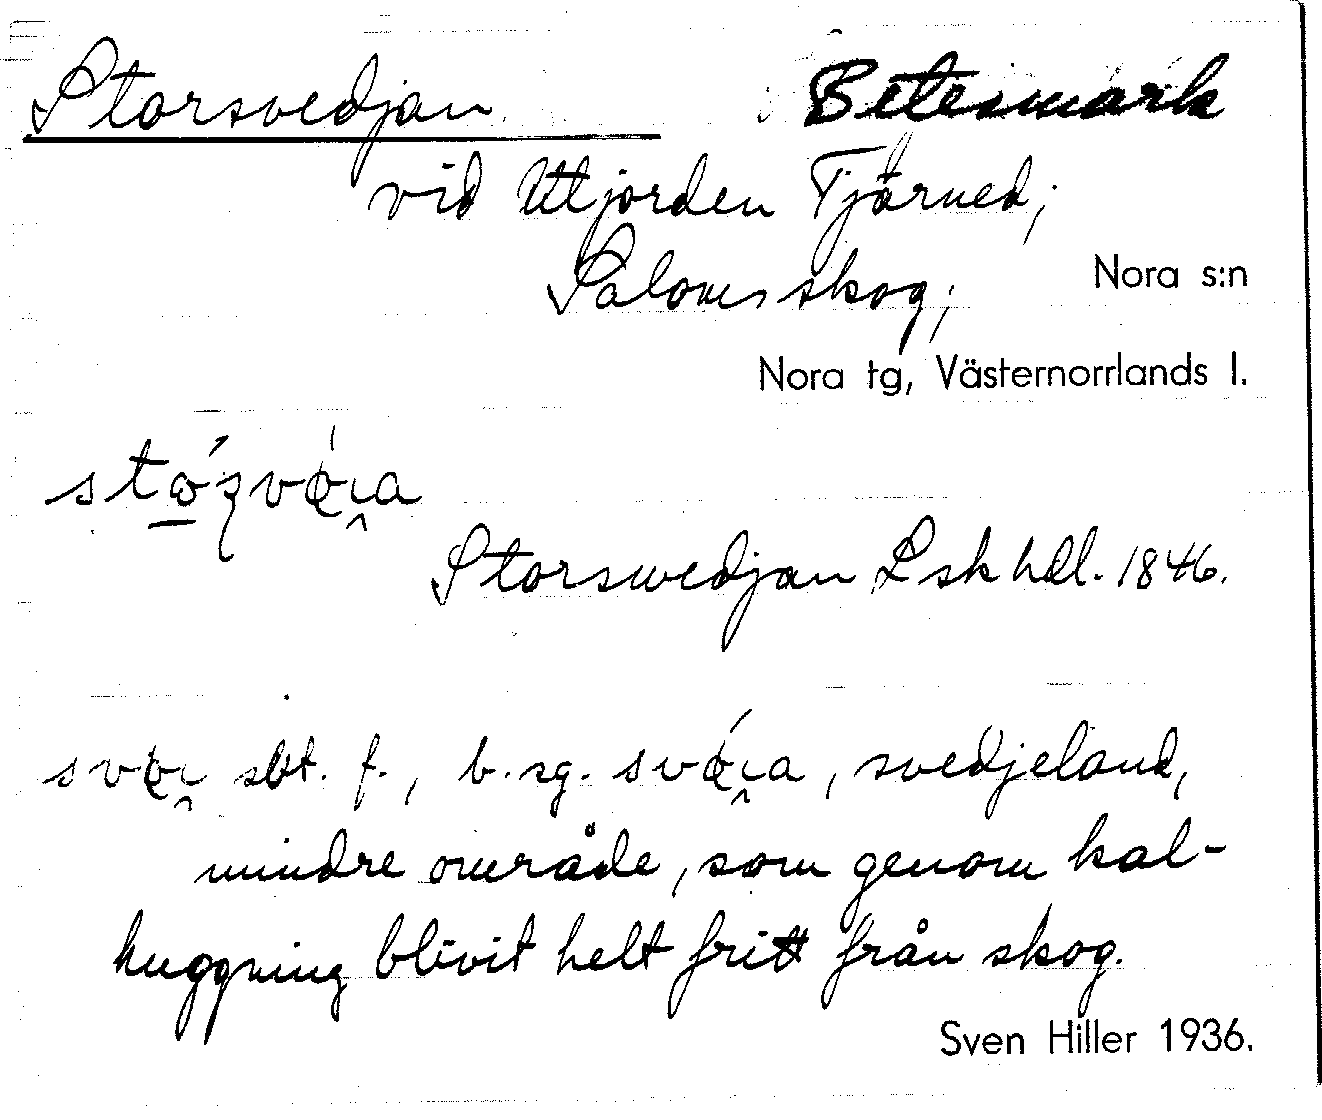 Storsvedjan Betesmark
vid Utjorden Tjärned;
skog; Nora s:n
Nora tg, Västernorrlands l.
Storswedjan Lsk hdl. 1846.
sbt. f., b. sg. , svedjeland,
mindre område, som genom kal-
huggning blivit helt fritt från skog.
Sven Hiller 1936.